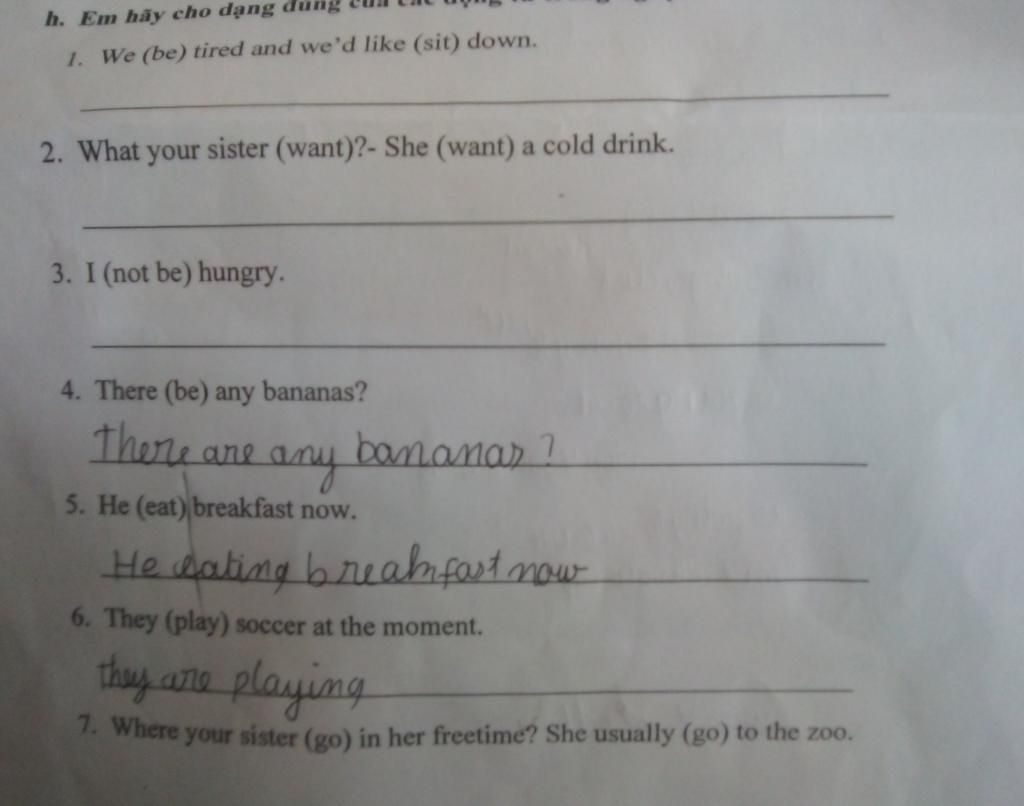 h. Em hãy cho dạng đúng của các động từ trong
1. We (be) tired and we'd like (sit) down.
2. What your sister (want)?- She (want) a cold drink.
3. I (not be) hungry.
4. There (be) any bananas?
There are any bananas?
5. He (eat) breakfast now.
He eating breakfast now
6. They (play) soccer at the moment.
they are playing
7. Where your sister (go) in her freetime? She usually (go) to the zoo.